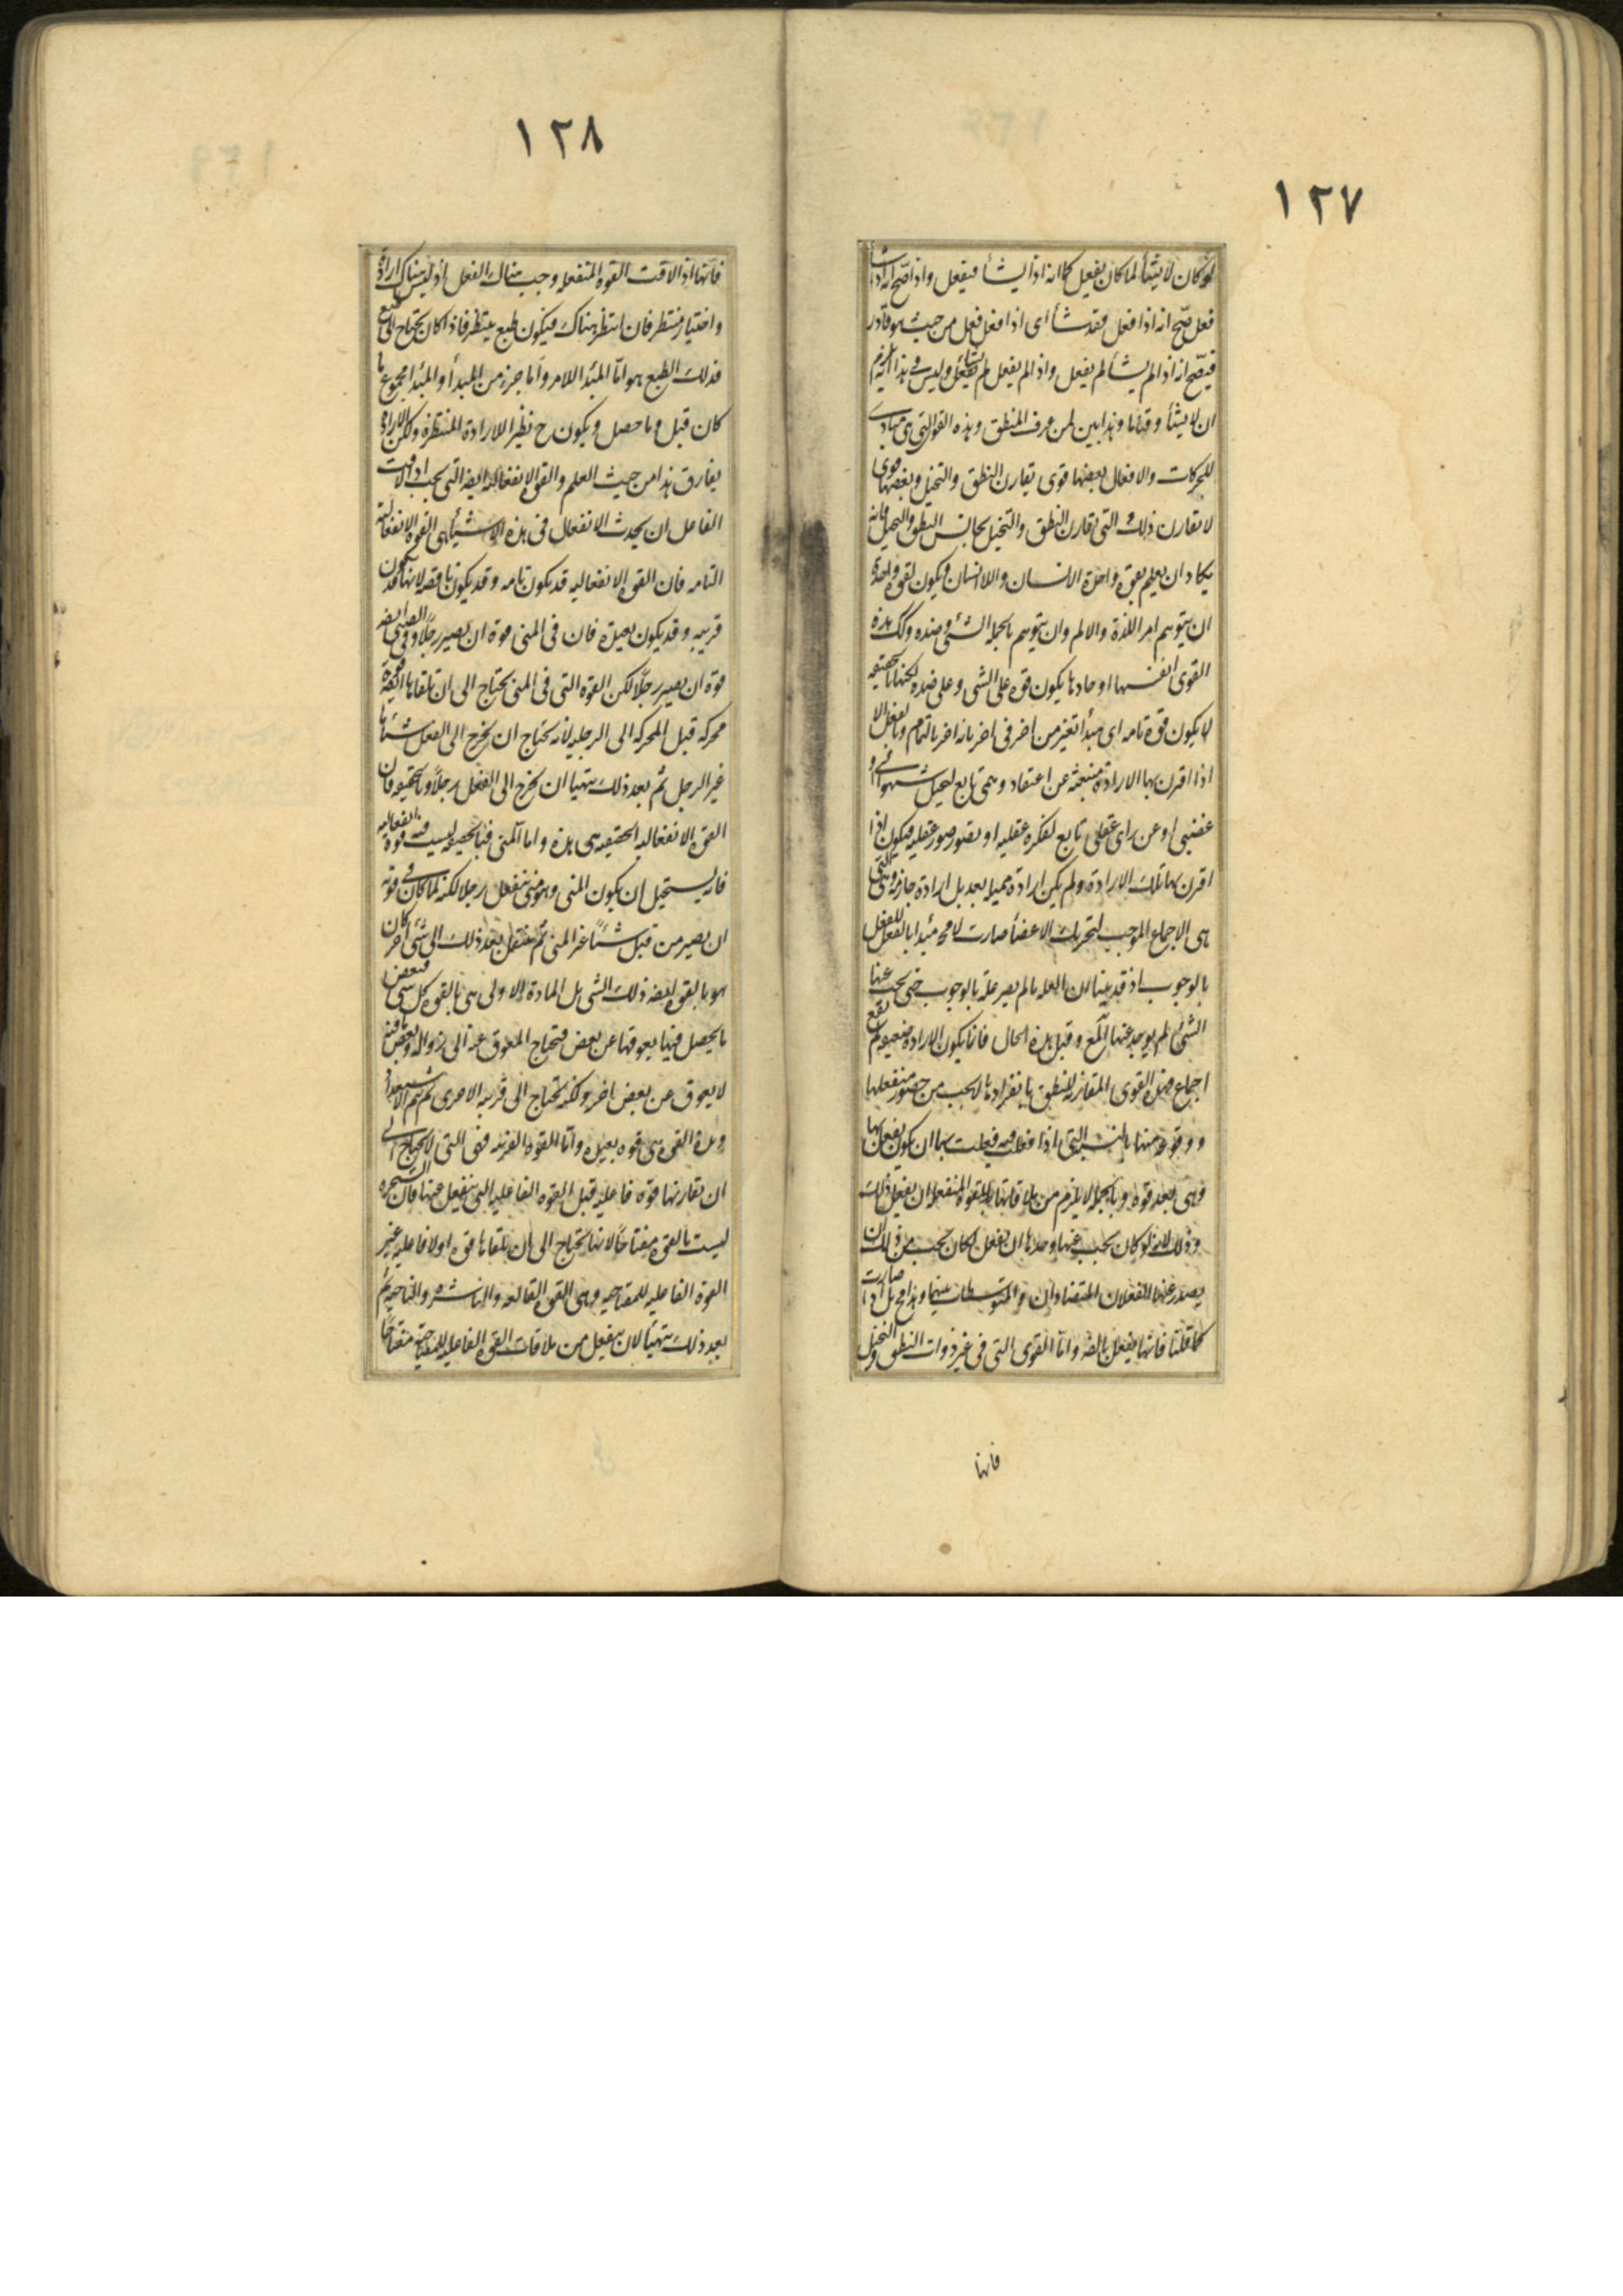 ١٢٧
لو كان لا يشأ لما كان يفعل كما انه اذا يشأ فيفعل واذا صح انه اذا شأ
فعل صح انه اذا فعل فقد شأ اى اذا فعل فعل من حيث هو قادر
فيصح انه اذا لم يشأ لم يفعل واذا لم يفعل لم يشأ وليس فى هذا انه يلزم
ان لا يشأ وقتا ما وهذا بين لمن عرف المنطق وهذه القوى التى هى مبادى
للحركات والافعال بعضها قوى تقارن النطق والتخيل وبعضها قوى
لا تقارن ذلك والتى تقارن النطق والتخيل تجانس النطق والتخيل فانه
يكاد ان يعلم بقوة واحدة الانسان واللاانسان ويكون لقوة واحدة
ان يتوهم امر اللذة والالم وان يتوهم بالجمله الشئ وضده وكك هذه
القوى انفسها او حادها يكون قوه على الشى وعلى ضده لكنها بالحقيقه
لا يكون قوة تامه اى مبدأ تغير من اخر فى اخر بانه اخر بالتمام وبالفعل الا
اذا اقرن بها الارادة منبعثه عن اعتقاد وهمى تابع لتخيل شهوانى او
غضبى او عن راى عقلى تابع لفكره عقليه او تصور صورة عقليه فيكون اذا
اقرن بها تلك الارادة ولم يكن ارادة مميله بعد بل ارادة جازمة وهى التى
هى الاجماع الموجب لتحريك الاعضأ صارت لا محه مبدأ بالفعل للفعل
بالوجوب اذ قد بينا ان العله ما لم يصر علة بالوجوب حتى يجب عنها
الشئ لم يوجد عنها المع وقبل هذه الحال فانما يكون الارادة ضعيفه لم يقع
اجماع فهذه القوى المقارنه للنطق بانفرادها لا يجب من حضور منفعلها
ووقوعه منها بالنسبة التى اذا فعلت فيه فعلت بها ان يكون يفعل بها
وهى بعد قوة وبالجمله لا يلزم من ملاقاتها للقوه المنفعله ان يفعل ذلك
وذلك لانه لو كان يجب عنها وحدها ان تفعل لكان يجب من ذلك ان
يصدر عنها الفعلان المتضادان والمتوسطات بينهما وهذا مح بل اذا صارت
كما قلنا فانها يفعل بالضه واما القوى التى فى غير ذوات النطق والتخيل
فانها
١٢٨
فانها اذا لاقت القوه المنفعله وجب هناك الفعل اذ ليس هناك ارادة
واختيار منتظر فان انتظر هناك فيكون طبع ينتظر فاذا كان يحتاج الى طبع
فذلك الطبع هو اما المبدأ للامر واما جزء من المبدأ والمبدأ مجموع ما
كان قبل وما حصل ويكون ح نظير اللارادة المنتظرة ولكن الارادة
يفارق هذا من حيث العلم والقوة الانفعاليه ايضه التى يجب اذا لاقت
الفاعل ان يحدث الانفعال فى هذه الاشيأ هى القوه الانفعاليه
التامه فان القوه الانفعاليه قد يكون تامه وقد يكون ناقصه لانها قد تكون
قريبه وقد يكون بعيدة فان فى المنى قوة ان يصير رجلا وفى الصبى ايضه
قوة ان يصير رجلا لكن القوة التى فى المنى يحتاج الى ان تلقاها ايضه قوة
محركه قبل المحركه الى الرجليه لانه يحتاج ان يخرج الى الفعل شيئا ما
غير الرجل ثم بعد ذلك يتهيا ان يخرج الى الفعل رجلا وبالحقيقه فان
القوه الانفعاليه الحقيقيه هى هذه واما المنى فبالحقيقه ليست فيه قوة انفعاليه
فانه يستحيل ان يكون المنى وهو منى ينفعل رجلا لكنه لما كان فى قوته
ان يصير من قبل شيئا غير المنى ثم ينتقل بعد ذلك الى شئ اخر كان
هو بالقوه ايضه ذلك الشى بل المادة الاولى هى بالقوه كل شى فبعض
ما يحصل فيها يعوقها عن بعض فتحتاج المعوق عنه الى زواله وبعض ما فيه
لا يعوق عن بعض اخر ولكنه يحتاج الى قرينه الاخرى حتى يتم الاستعداد
وهذه القوه هى قوه بعيده واما القوه القريبه فهى التى لا يحتاج الى
ان تقارنها قوه فاعليه قبل القوه الفاعليه التى ينفعل عنها فان الشجره
ليست بالقوه مفتاحا لانها تحتاج الى ان تلقاها قوه اولا فاعليه غير
القوة الفاعليه للمفتاحيه وهى القوه القالعه والناشره والناحته ثم
بعد ذلك يتهيأ لان ينفعل من ملاقات القوه الفاعليه للمفتاحية مفتاحا